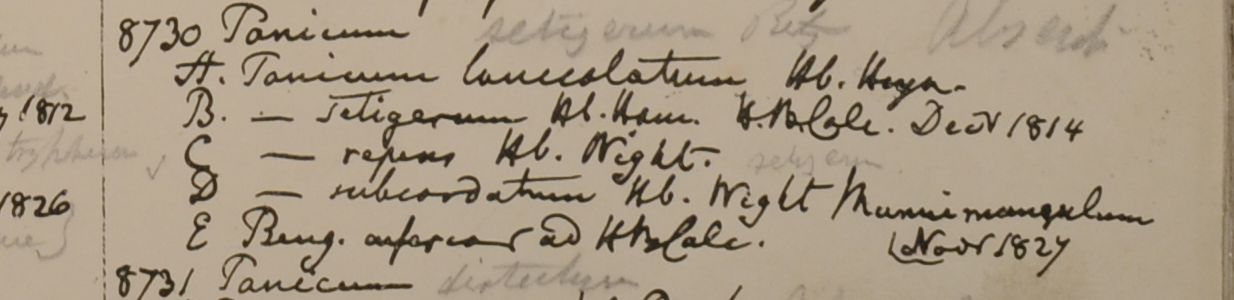 8730 Panicum setigerum Retz Absent
A. Panicum lanceolatum Hb. Heyn.
B. — setigerum Hb. Ham. H.B. Calc. Decr 1814
y 1812
C — repens Hb. Wight. setigerum
D — subcordatum Hb. Wight
1826
E Beng. ad HB Calc. Novr 1827
8731 Panicum